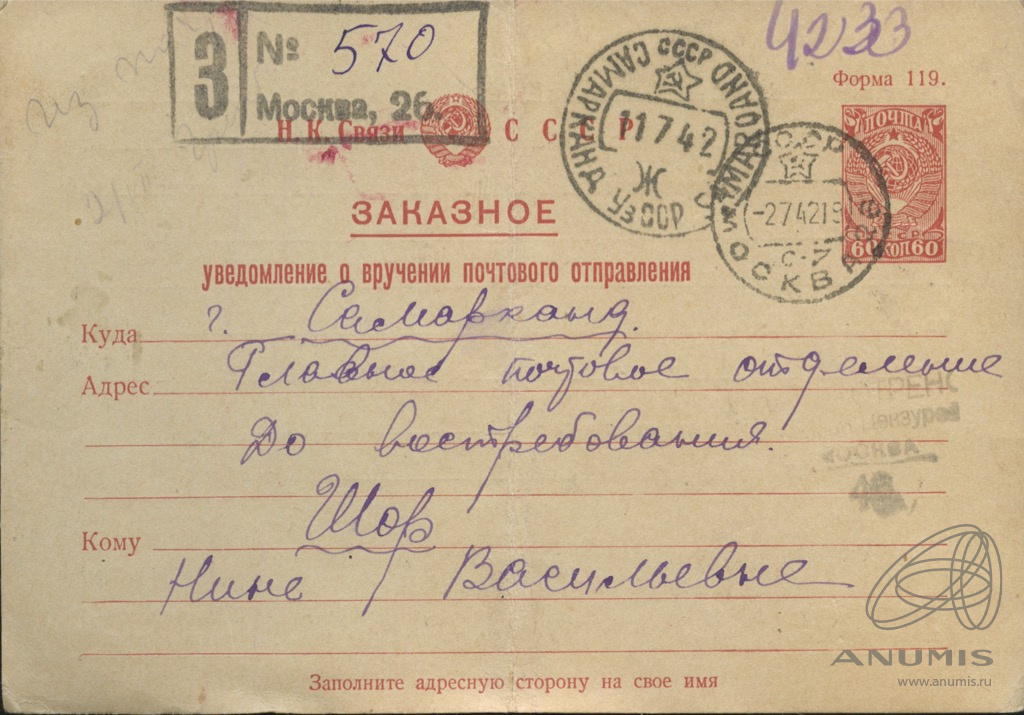 4233
З № 570
Москва, 26.
Форма 119.
Н. К. Связи СССР
САМАРКАНД СССР SAMARQAND
11 7 42
Ж
УзССР
СССР
-274219
МОСКВА
ПОЧТА
60 КОП 60
ЗАКАЗНОЕ
уведомление о вручении почтового отправления
Куда г. Самарканд.
Адрес Главное почтовое отделение
До востребования.
Цензурой
МОСКВА
Кому Шор
Нине Васильевне
Заполните адресную сторону на свое имя
ANUMIS
www.anumis.ru